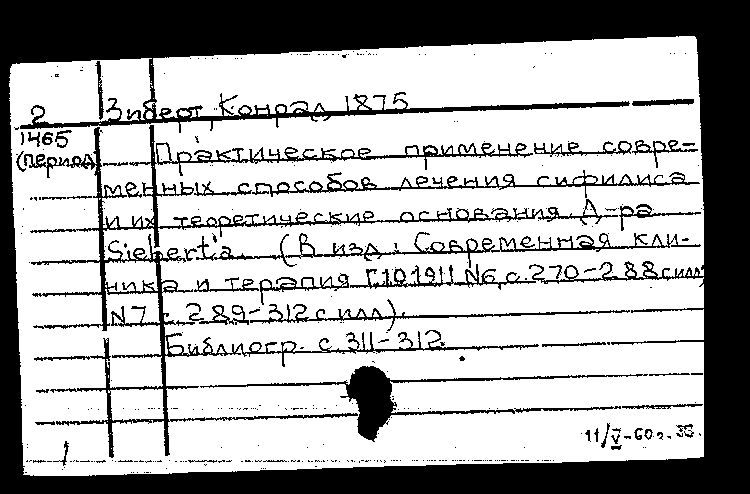 2 Зиберт, Конрад, 1875
1465
(период)
Практическое применение совре=
менных способов лечения сифилиса
и их теоретические основания. Д-ра
Siebert'a. (В изд.: Современная кли-
ника и терапия Г.10.1911 N6, с. 270-288 с илл;
N7 с 289-312 с илл).
Библиогр. с. 311-312.
11/V-60г.